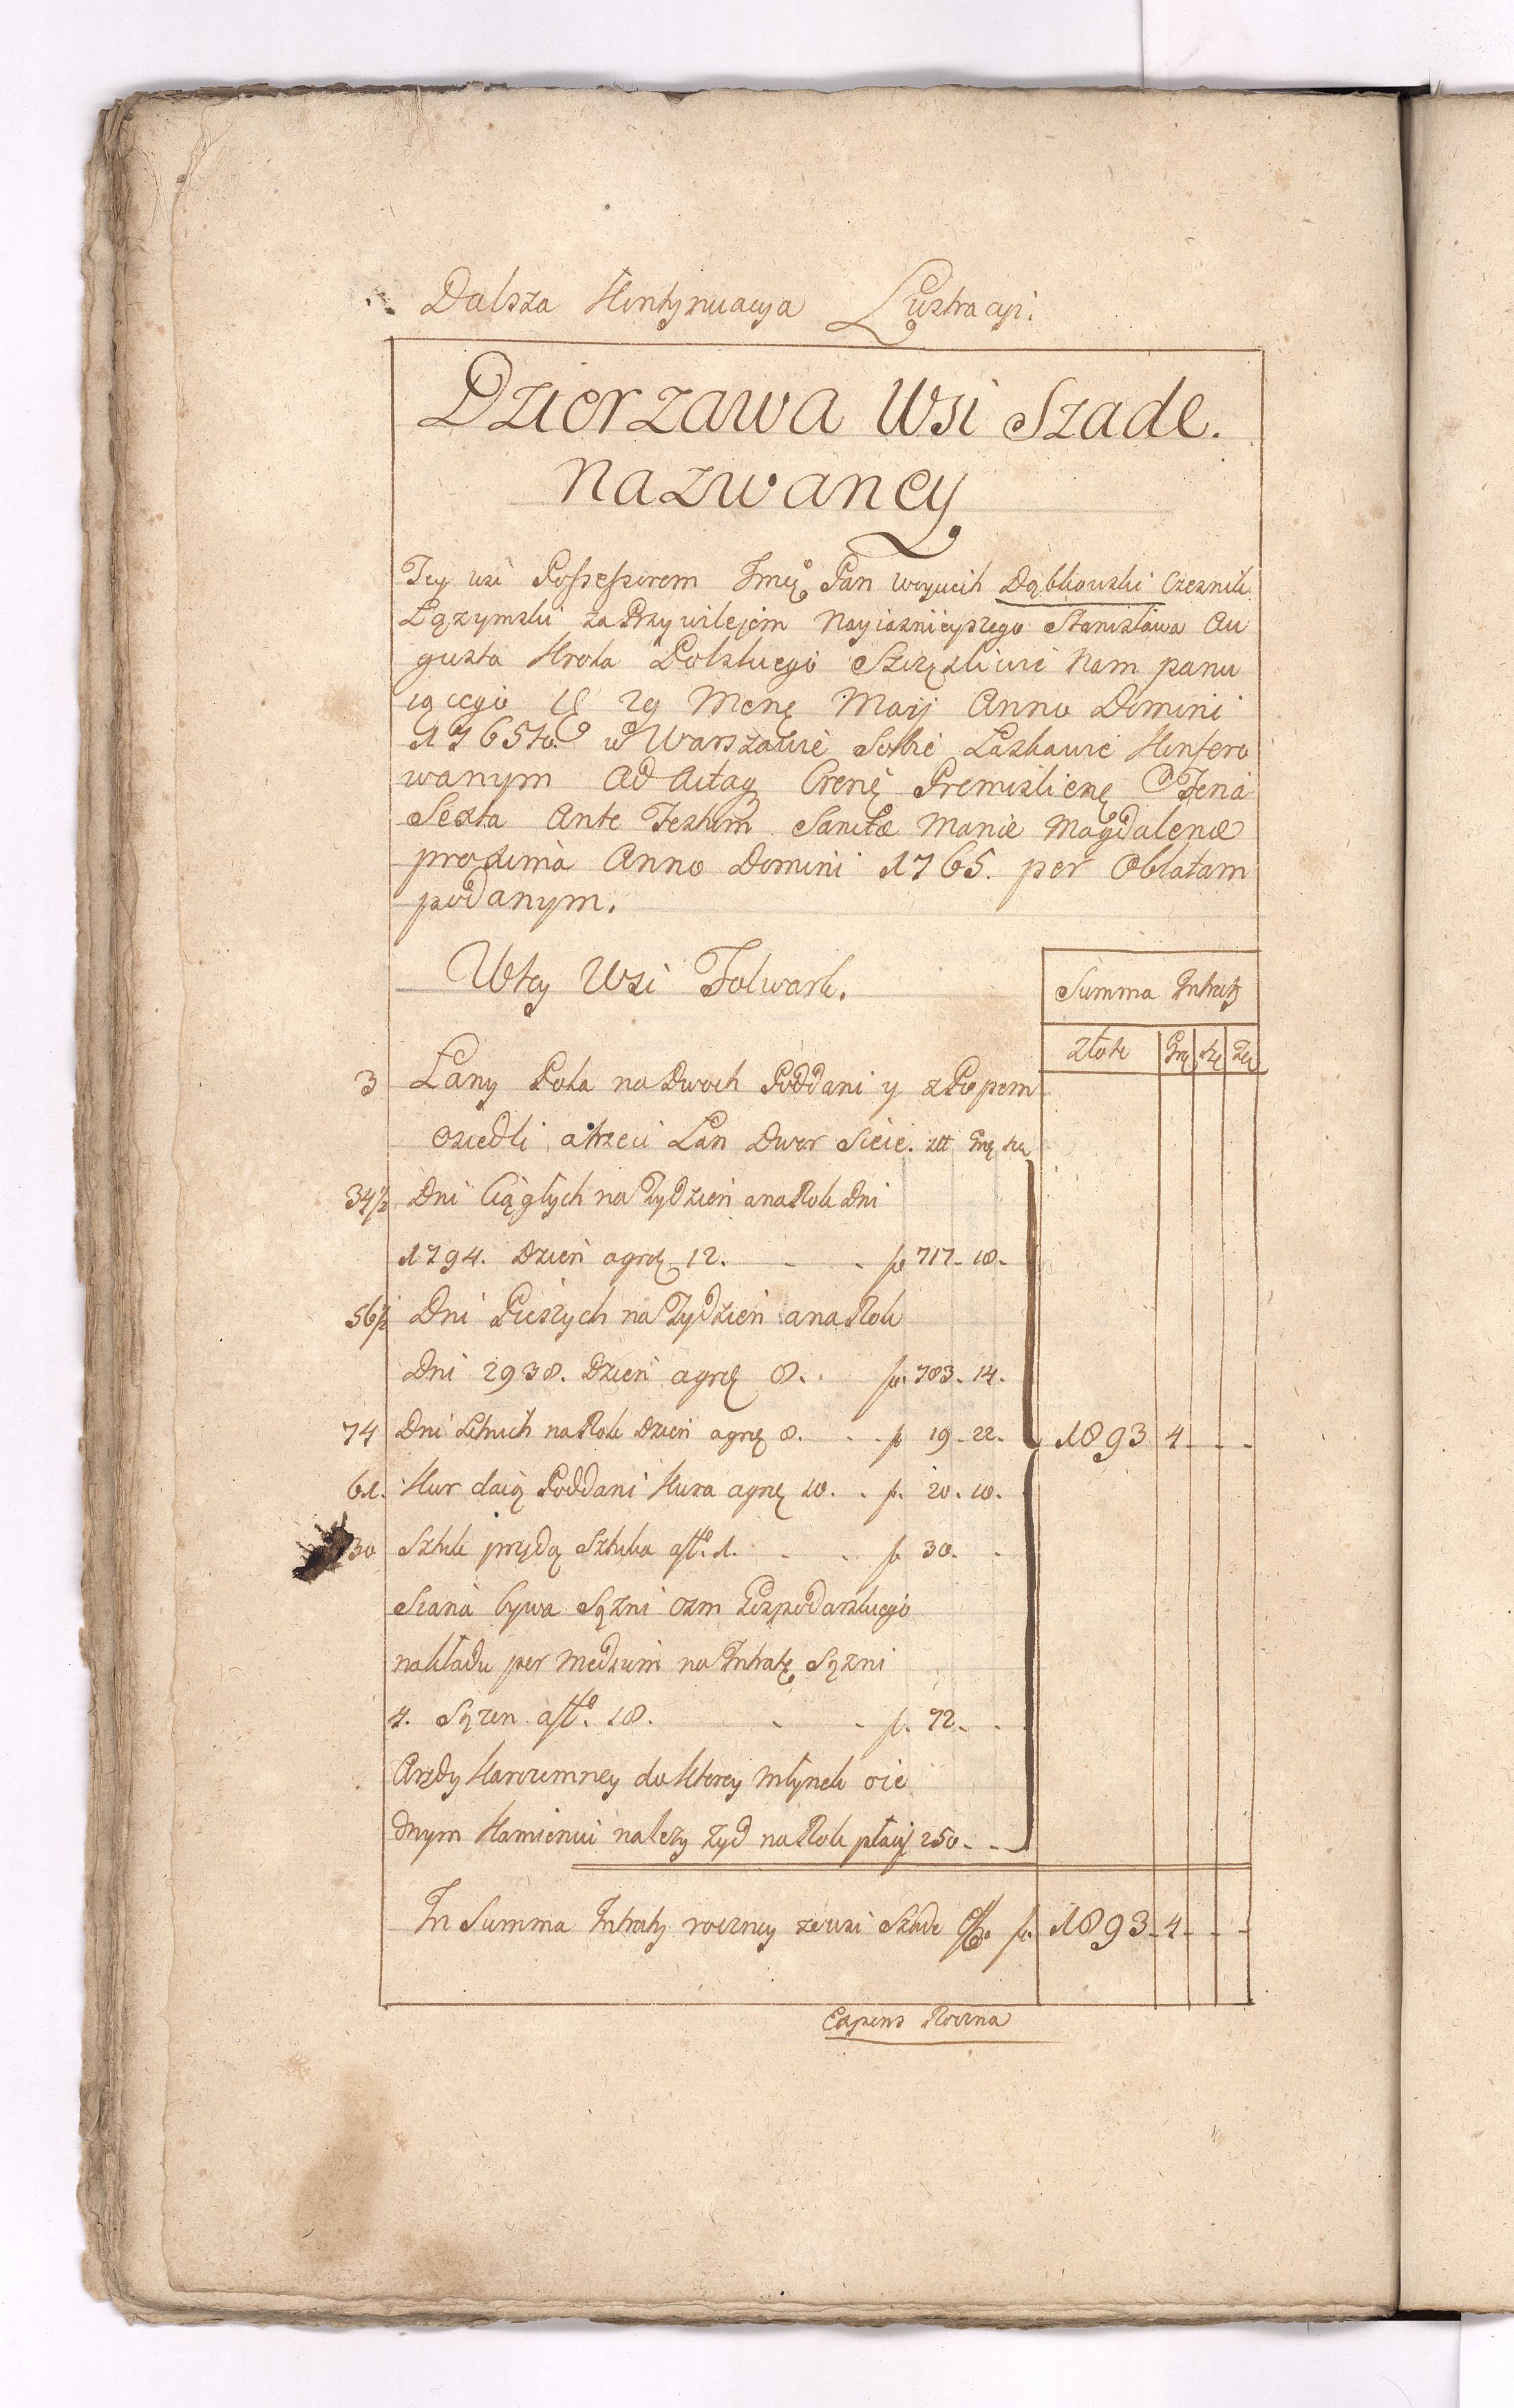 Dalsza Kontynuacya Lustracyi.
Dzierzawa Wsi Szade.
nazwaney
Tey wsi Possessorem Jmć Pan Woyciech Dąbkowski Czesnik
Łązymski za Przywilejem Nayiasnieyszego Stanisława Au
gusta Krola Polskiego Szczęsliwie Nam panu
iącego 29 Mensę Maij Anno Domini
1765to w Warszawie Sobie Łaskawie Konfero
wanym Ad Acta Premislienę Feria
Sexta Ante Festum Sanctæ Mariæ Magdalenæ
proxima Anno Domini 1765. per Oblatam
podanym.
W tey Wsi Folwark.
Summa Intraty
Złote Grę
3 Łany Pola na Dwoch Poddani y z Popem
osiedli, a trzeci Łan Dwor Sieie. złł Grę
34 1/2 Dni Ciągłych na Tydzień a na Rok Dni
1794. Dzień a grę 12. - - f 717 - 18 -
56 1/2 Dni Pieszych na Tydzień a na Rok
Dni 2938. Dzień a grę 8. f 783 - 14 -
74 Dni Letnich na Rok Dzień a grę 8. - - f 19 - 22 - 1893 4 - - -
61. Kur daią Poddani Kura a grę 10. - f. 20 - 10 -
30 Sztuk przędą Sztuka a fło. 1. - - f 30. -
Siana bywa Sążni osm Gospodarskiego
nakładu per Medium na Intratę Sążni
4. Sążen a fło. 18. - - f. 72 - -
Arędy Karczemney do ktorey młynek o ie
dnym Kamieniu należy Żyd na Rok płaci 250 - - -
In Summa Intraty roczney ze wsi Szade f. 1893 - 4 - - -
Expens Roczna